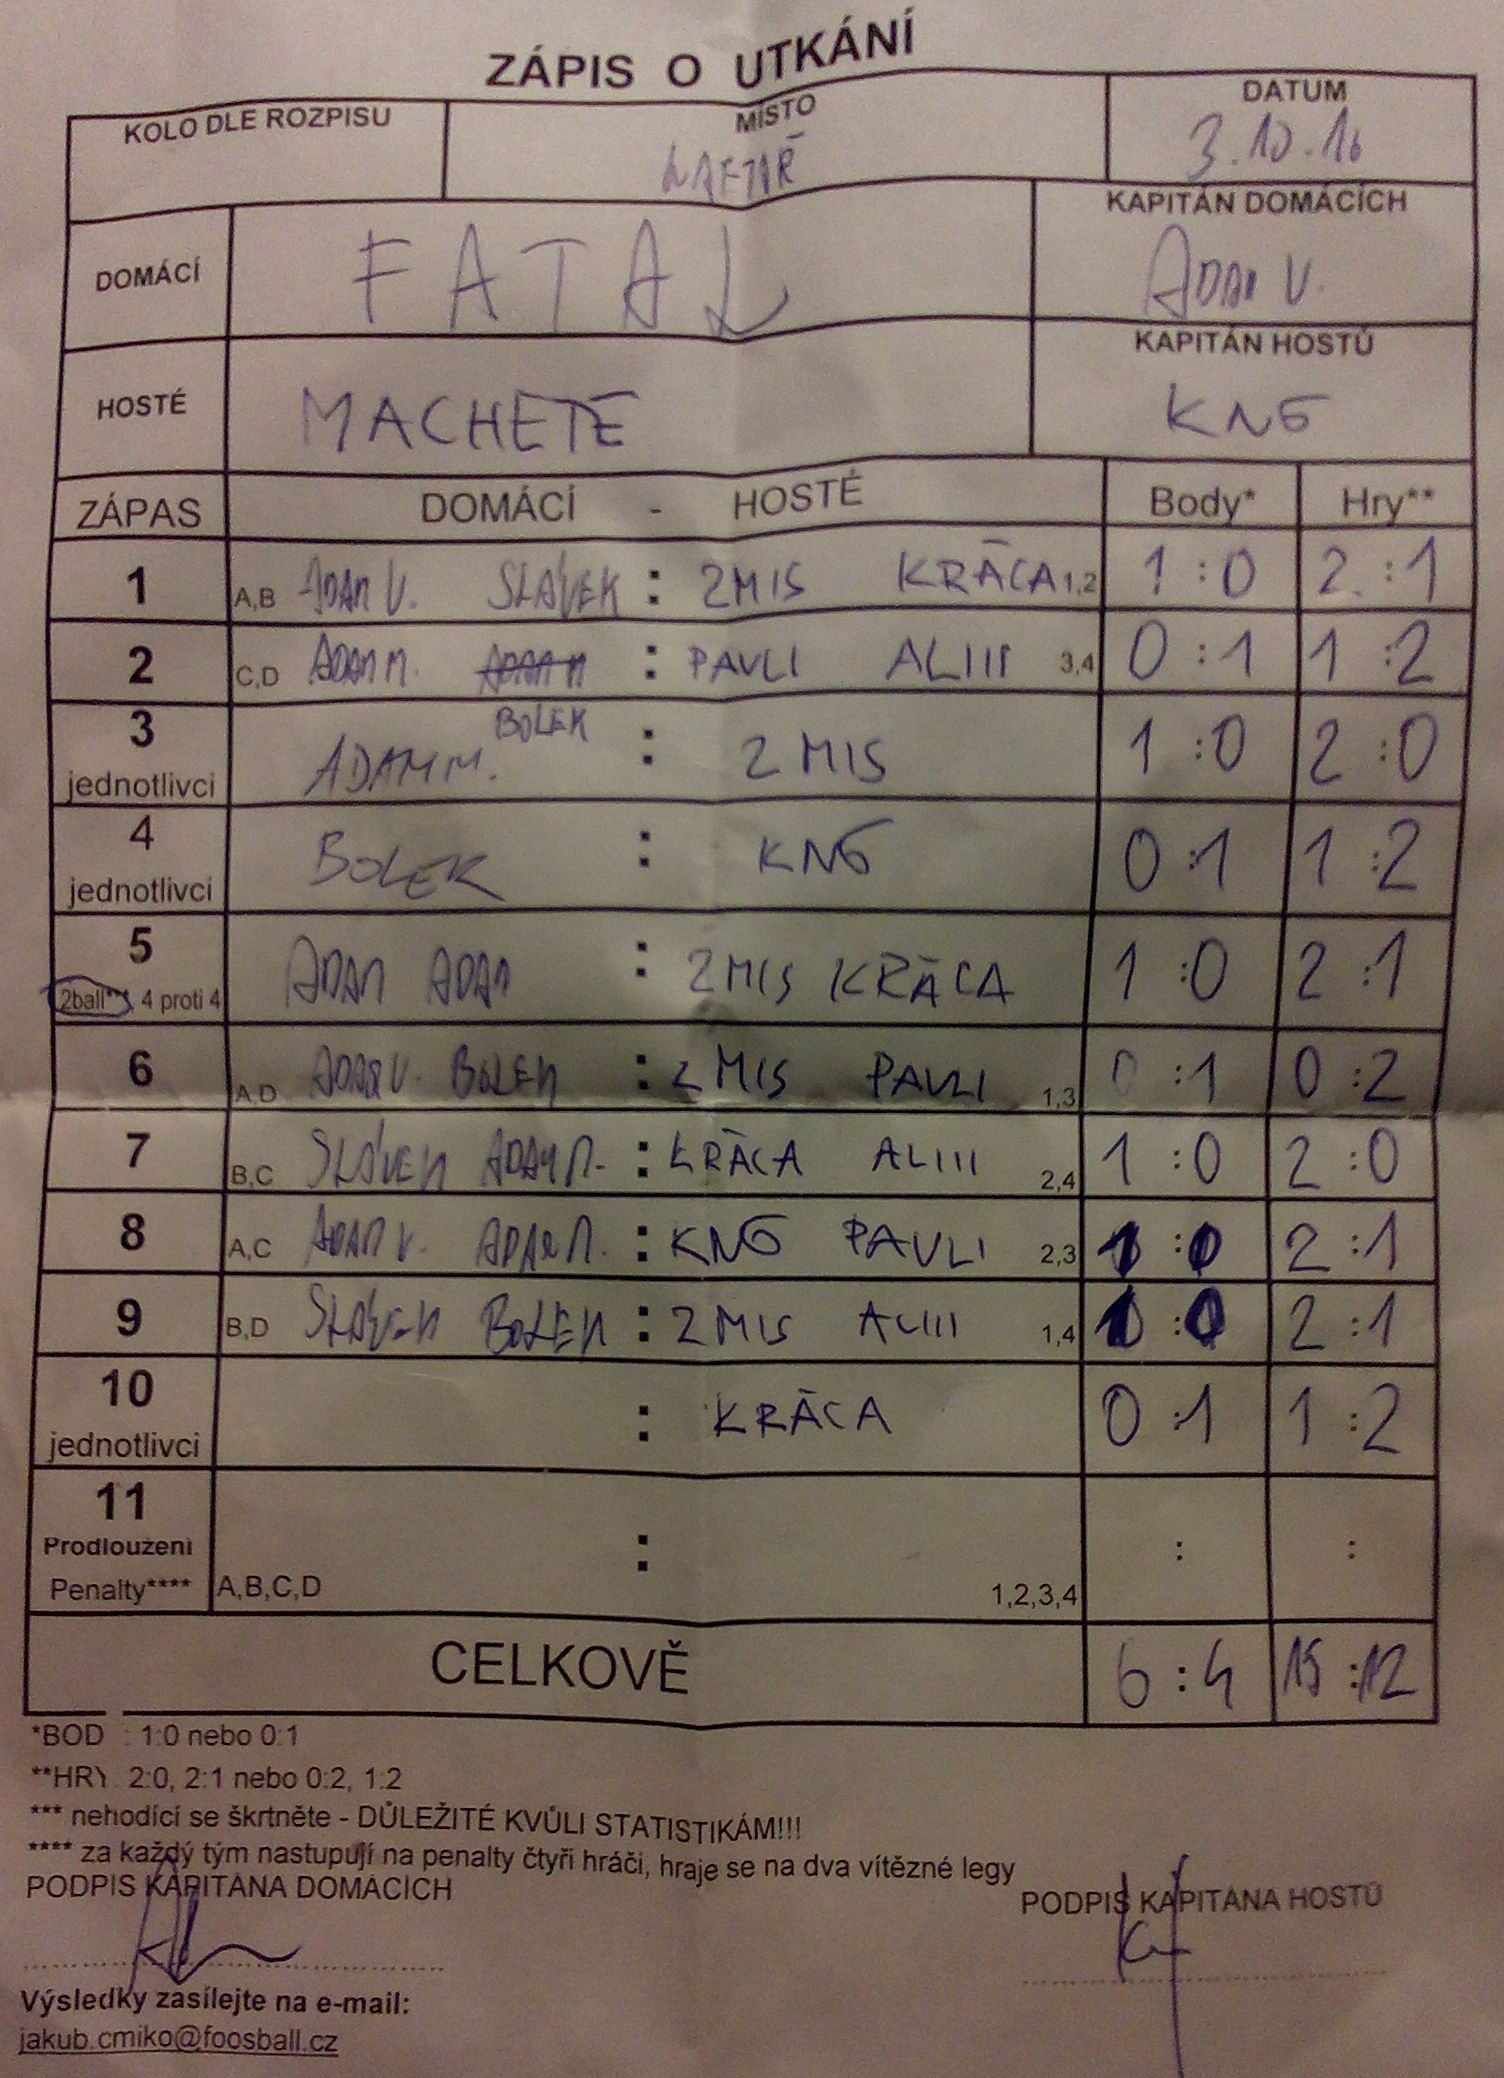 ZÁPIS O UTKÁNÍ
KOLO DLE ROZPISU MÍSTO DATUM
3.10.16
KAPITÁN DOMÁCÍCH
DOMÁCÍ FATAL ADAM V.
KAPITÁN HOSTŮ
HOSTÉ MACHETE KNG
ZÁPAS DOMÁCÍ - HOSTÉ Body* Hry**
1 A,B ADAM V. SLÁVEK : 2MIS KRÁCA 1,2 1 : 0 2 : 1
2 C,D ADAM M. : PAVLI ALIII 3,4 0 : 1 1 : 2
BOLEK
3 jednotlivci ADAM M. : 2MIS 1 : 0 2 : 0
4 jednotlivci BOLEK : KNG 0 : 1 1 : 2
5 2ball***, 4 proti 4 ADAM ADAM : 2MIS KRÁCA 1 : 0 2 : 1
6 A,D ADAM V. BOLEK : 2MIS PAVLI 1,3 0 : 1 0 : 2
7 B,C SLÁVEK ADAM M. : KRÁCA ALIII 2,4 1 : 0 2 : 0
8 A,C ADAM V. ADAM M. : KNG PAVLI 2,3 1 : 0 2 : 1
9 B,D SLÁVEK BOLEK : 2MIS ALIII 1,4 1 : 0 2 : 1
10 jednotlivci : KRÁCA 0 : 1 1 : 2
11
Prodloužení : : :
Penalty**** A,B,C,D 1,2,3,4
CELKOVĚ 6 : 4 15 : 12
*BOD : 1:0 nebo 0:1
**HRY 2:0, 2:1 nebo 0:2, 1:2
*** nehodící se škrtněte - DŮLEŽITÉ KVŮLI STATISTIKÁM!!!
**** za každý tým nastupují na penalty čtyři hráči, hraje se na dva vítězné legy
PODPIS KAPITÁNA DOMÁCÍCH PODPIS KAPITÁNA HOSTŮ
Výsledky zasílejte na e-mail:
jakub.cmiko@foosball.cz